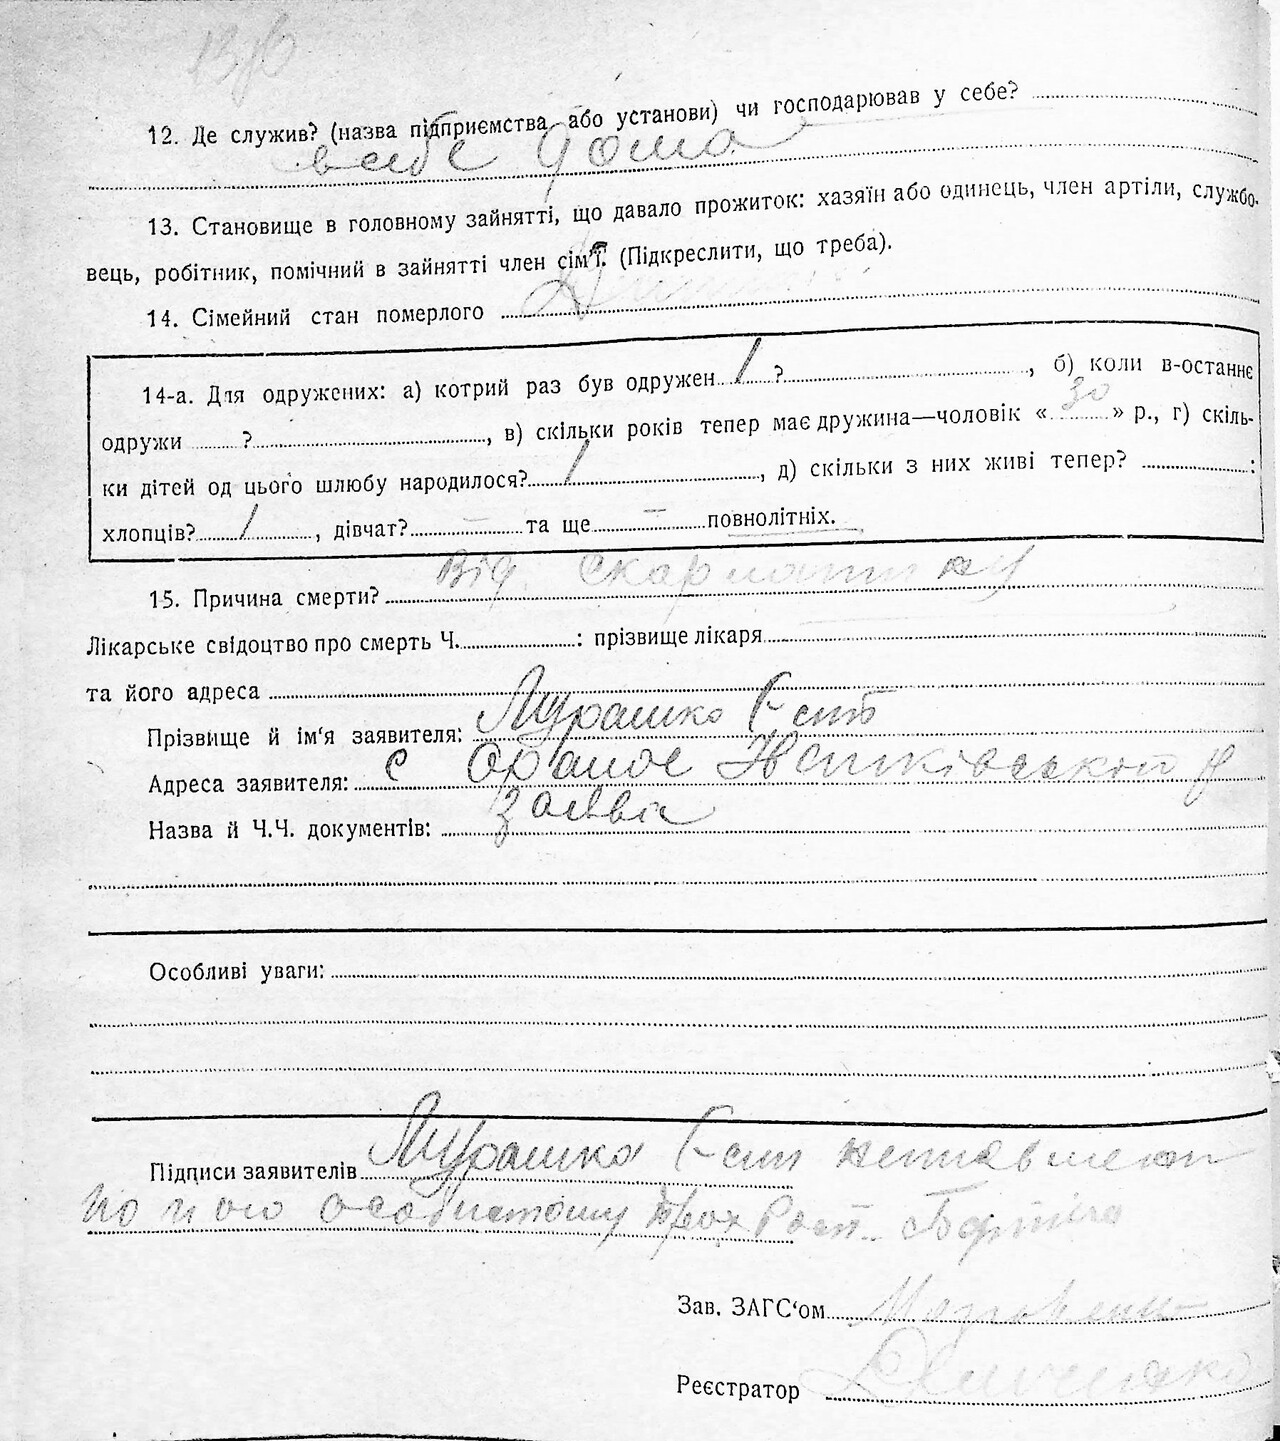 12. Де служив? (назва підприємства або установи) чи господарював у себе?
в себе дома
13. Становище в головному зайнятті, що давало прожиток: хазяїн або одинець, член артіли, службо-
вець, робітник, помічний в зайнятті член сім'ї. (Підкреслити, що треба).
14. Сімейний стан померлого
14-а. Для одружених: а) котрий раз був одружен 1 ?, б) коли в-останнє
одружи ?, в) скільки років тепер має дружина—чоловік «30» р., г) скіль-
ки дітей од цього шлюбу народилося? 1, д) скільки з них живі тепер? :
хлопців? 1, дівчат? — та ще — повнолітніх.
від скарлатини
15. Причина смерти?
Лікарське свідоцтво про смерть Ч. : прізвище лікаря
та його адреса
Прізвище й ім'я заявителя: Мурашко
Адреса заявителя: с
Назва й Ч.Ч. документів: заява
Особливі уваги:
Підписи заявителів Мурашко
по його особистому
Зав. ЗАГС'ом
Реєстратор